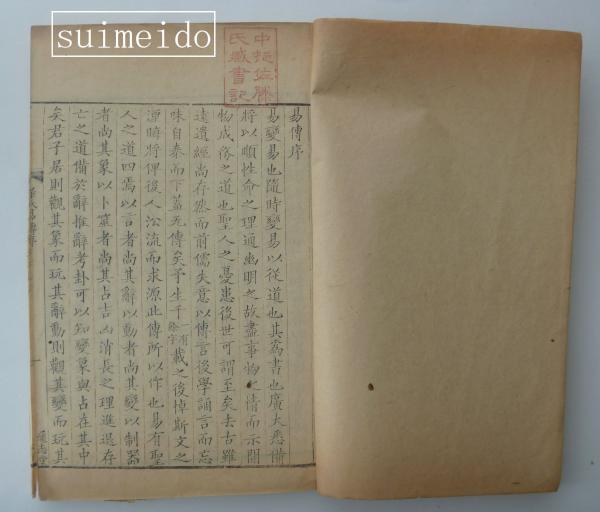 suimeido
中佐藤
氏藏書記
易傳序
易變易也隨時變易以從道也其爲書也廣大悉備
將以順性命之理通幽明之故盡事物之情而示開
物成務之道也聖人之憂患後世可謂至矣去古雖
遠遺經尚存然而前儒失意以傳言後學誦言而忘
味自秦而下蓋无傳矣予生千一有餘字載之後悼斯文之
湮晦將俾後人沿流而求源此傳所以作也易有聖
人之道四焉以言者尚其辭以動者尚其變以制器
者尚其象以卜筮者尚其占吉凶消長之理進退存
亡之道備於辭推辭考卦可以知變象與占在其中
矣君子居則觀其象而玩其辭動則觀其變而玩其
通志堂